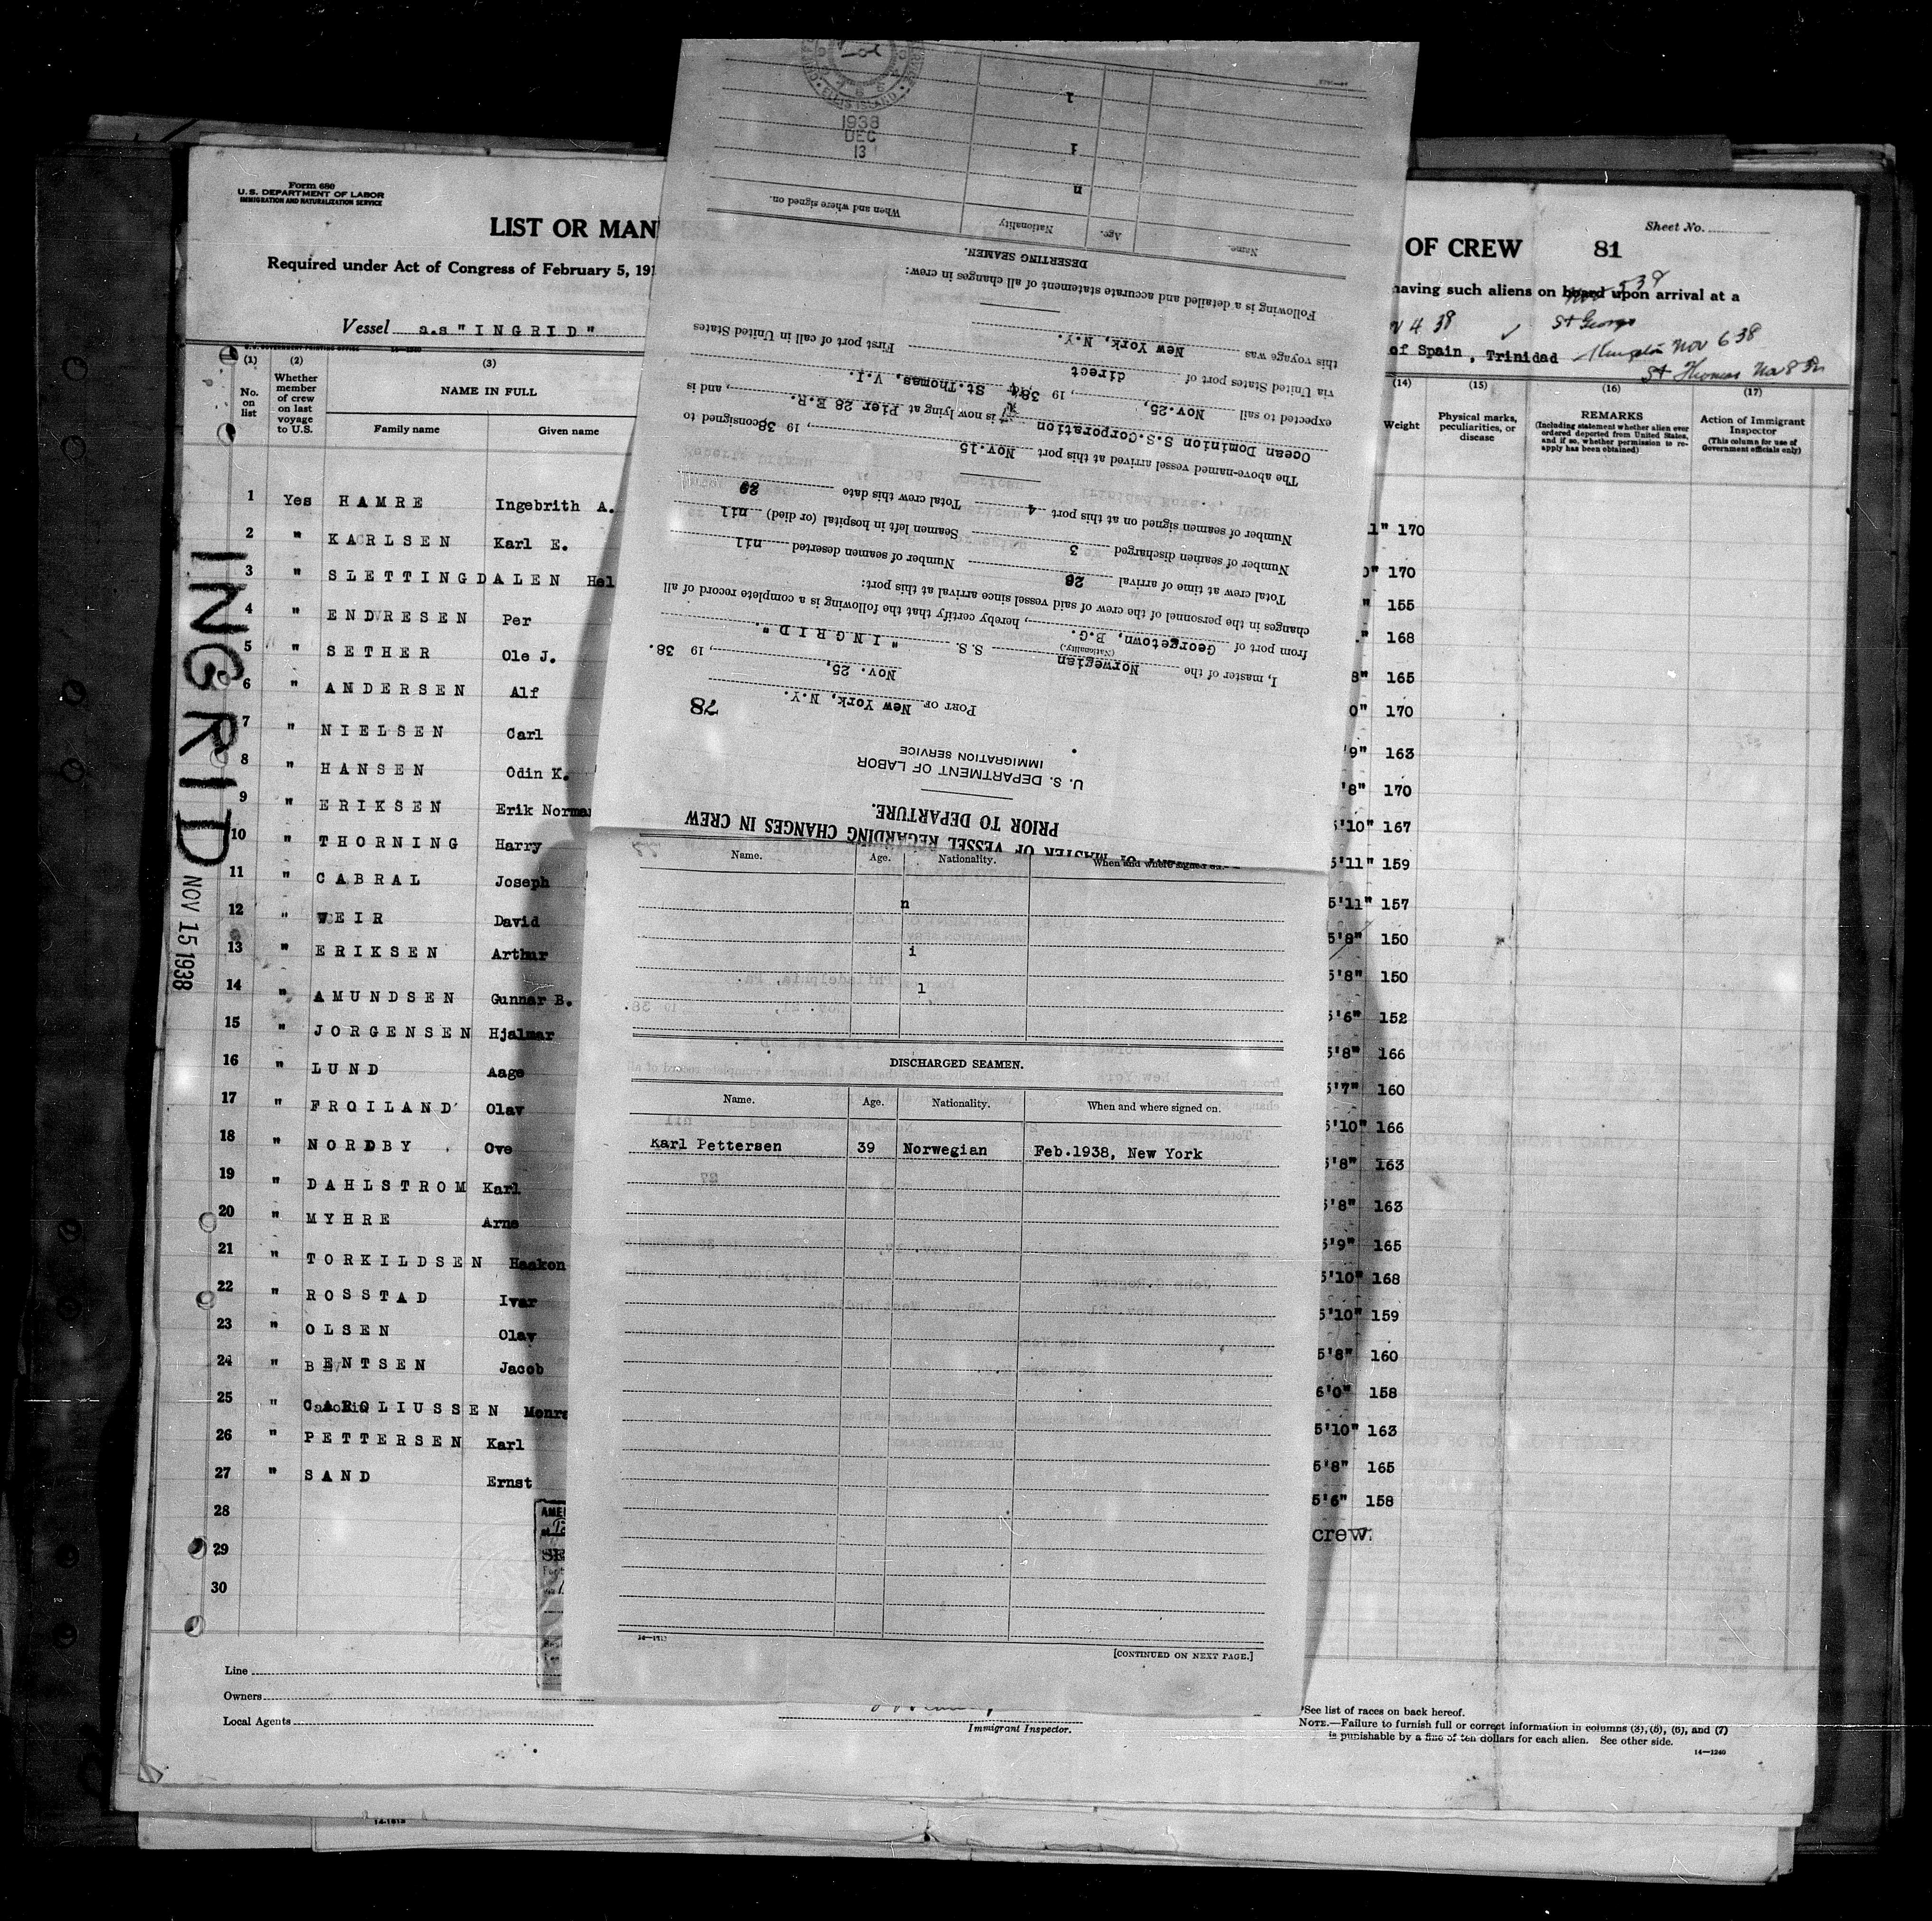 Form 680
U.S. DEPARTMENT OF LABOR
IMMIGRATION AND NATURALIZATION SERVICE
LIST OR MAN
Required under Act of Congress of February 5, 191
Vessel s.s "INGRID"
(1) (2) (3)
No. on list
Whether member of crew on last voyage to U.S.
NAME IN FULL
Family name Given name
1 Yes HAMRE Ingebrith A.
2 " KARLSEN Karl E.
3 " SLETTINGDALEN Hel
4 " ENDRESEN Per
5 " SETHER Ole J.
6 " ANDERSEN Alf
7 " NIELSEN Carl
8 " HANSEN Odin K.
9 " ERIKSEN Erik Norman
10 " THORNING Harry
11 " CABRAL Joseph
12 " WEIR David
13 " ERIKSEN Arthur
14 " AMUNDSEN Gunnar B.
15 " JORGENSEN Hjalmar
16 " LUND Aage
17 " FROILAND Olav
18 " NORDBY Ove
19 " DAHLSTROM Karl
20 " MYHRE Arne
21 " TORKILDSEN Haakon
22 " ROSSTAD Ivar
23 " OLSEN Olav
24 " BENTSEN Jacob
25 " CAROLIUSSEN Monra
26 " PETTERSEN Karl
27 " SAND Ernst
28
29
30
INGRID
NOV 15 1938
Line
Owners
Local Agents
Immigrant Inspector.
OF CREW 81
Sheet No.
having such aliens on board upon arrival at a
St George
of Spain, Trinidad Kingston Nov 6 38
St Thomas Nov 8 38
(14) (15) (16) (17)
Weight
Physical marks, peculiarities, or disease
REMARKS
(Including statement whether alien ever ordered deported from United States, and if so, whether permission to reapply has been obtained)
Action of Immigrant Inspector
(This column for use of Government officials only)
1" 170
0" 170
" 155
" 168
8" 165
0" 170
'9" 163
'8" 170
5'10" 167
5'11" 159
5'11" 157
5'8" 150
5'8" 150
5'6" 152
5'8" 166
5'7" 160
5'10" 166
5'8" 163
5'8" 163
5'9" 165
5'10" 168
5'10" 159
5'8" 160
6'0" 158
5'10" 163
5'8" 165
5'6" 158
crew.
See list of races on back hereof.
NOTE.—Failure to furnish full or correct information in columns (3), (5), (6), and (7)
is punishable by a fine of ten dollars for each alien. See other side.
14—1240
MASTER OF VESSEL REGARDING CHANGES IN CREW
PRIOR TO DEPARTURE.
U. S. DEPARTMENT OF LABOR
IMMIGRATION SERVICE
78
PORT OF New York, N.Y.
Nov. 25, , 19 38.
I, master of the Norwegian S.S. "INGRID".
(Nationality.)
from port of Georgetown, B.G. , hereby certify that the following is a complete record of all
changes in the personnel of the crew of said vessel since arrival at this port:
Total crew at time of arrival 28 Number of seamen deserted nil
Number of seamen discharged 3 Seamen left in hospital (or died) nil
Number of seamen signed on at this port 4 Total crew this date 29
The above-named vessel arrived at this port Nov.15 , 19 38 consigned to
Ocean Dominion S.S.Corporation is now lying at Pier 28 E.R. , and is
expected to sail Nov.25, , 19 38, St.Thomas, V.I.
via United States port of direct First port of call in United States
this voyage was New York, N.Y.
Following is a detailed and accurate statement of all changes in crew:
DESERTING SEAMEN.
Name. Age. Nationality When and where signed on.
n
i
l
ELLIS ISLAND
1938
DEC
13
Name. Age. Nationality. When and where signed on.
n
i
l
DISCHARGED SEAMEN.
Name. Age. Nationality. When and where signed on.
Karl Pettersen 39 Norwegian Feb.1938, New York
[CONTINUED ON NEXT PAGE.]